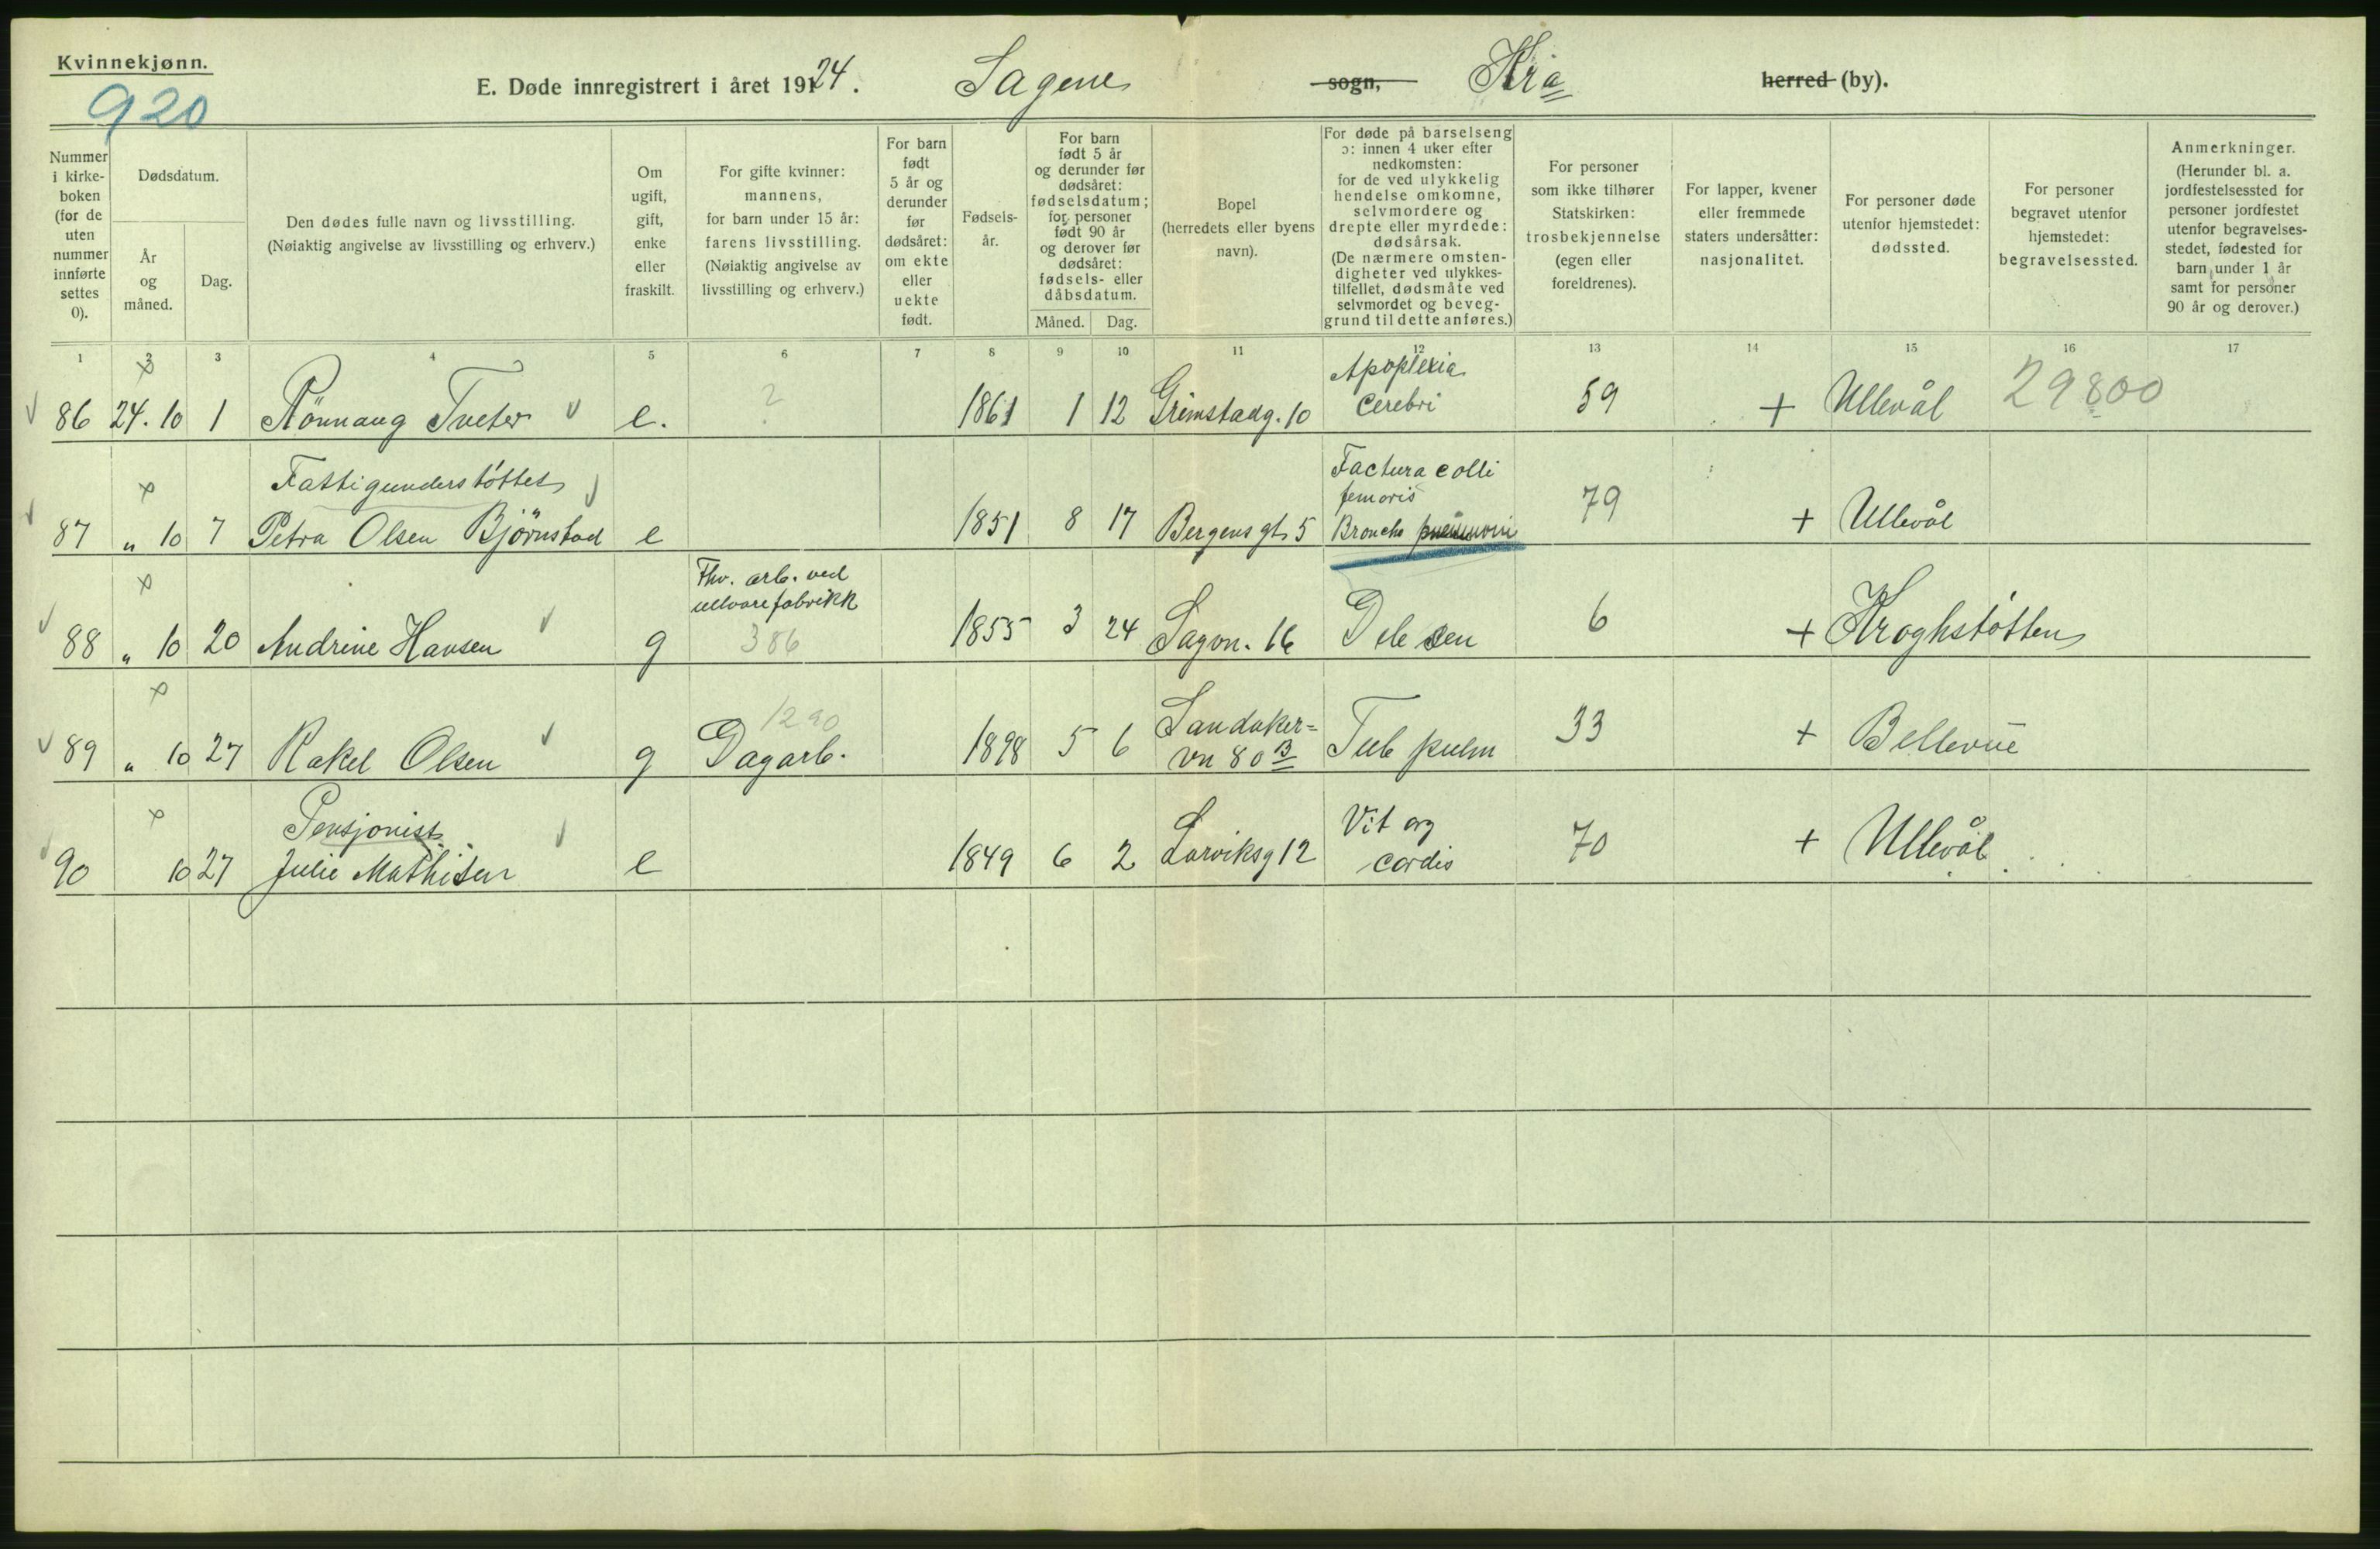 Kvinnekjønn.
920
E. Døde innregistrert i året 1924. Sagene sogn, Kria herred (by).
Nummer i kirke- boken (for de uten nummer innførte settes 0).
Dødsdatum.
År og måned.
Dag.
Den dødes fulle navn og livsstilling.
(Nøiaktig angivelse av livsstilling og erhverv.)
Om ugift, gift, enke eller fraskilt.
For gifte kvinner: mannens, for barn under 15 år: farens livsstilling. (Nøiaktig angivelse av livsstilling og erhverv.)
For barn født 5 år og derunder før dødsåret: om ekte eller uekte født.
Fødsels- år.
For barn født 5 år og derunder før dødsåret: fødselsdatum; for personer født 90 år og derover før dødsåret: fødsels- eller dåbsdatum.
Måned. Dag.
Bopel (herredets eller byens navn).
For døde på barselseng ɔ: innen 4 uker efter nedkomsten: for de ved ulykkelig hendelse omkomne, selvmordere og drepte eller myrdede: dødsårsak. (De nærmere omsten- digheter ved ulykkes- tilfellet, dødsmåte ved selvmordet og beveg- grund til dette anføres.)
For personer som ikke tilhører Statskirken: trosbekjennelse (egen eller foreldrenes).
For lapper, kvener eller fremmede staters undersåtter: nasjonalitet.
For personer døde utenfor hjemstedet: dødssted.
For personer begravet utenfor hjemstedet: begravelsessted.
Anmerkninger. (Herunder bl. a. jordfestelsessted for personer jordfestet utenfor begravelses- stedet, fødested for barn under 1 år samt for personer 90 år og derover.)
1 2 3 4 5 6 7 8 9 10 11 12 13 14 15 16 17
86 24. 10 1 Rönnaug Tveter e. ? 1861 1 12 Grimstadg. 10 Apoplexia cerebri 59 + Ullevål 29800
Fattigunderstøttet
87 „ 10 7 Petra Olsen Björnstad e 1851 8 17 Bergensgt 5 Factura colli femoris Broncho pneumoni 79 + Ullevål
Fhv. arb. ved ullvarefabrikk
88 „ 10 20 Andrine Hansen g 386 1855 3 24 Sagvn. 16 6 + Kroghstøtten
89 „ 10 27 Rakel Olsen g 1290 Dagarb. 1898 5 6 Sandaker= vn 80 B Tub pulm 33 + Bellevue
Pensjonist
90 10 27 Julie Mathisen e 1849 6 2 Larviksg 12 Vit org cordis 70 + Ullevål